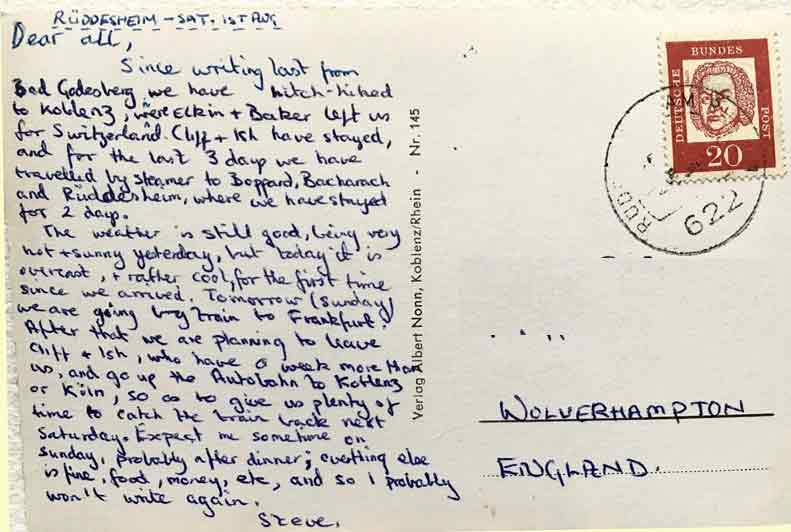 RÜDDESHEIM - SAT. 1ST AUG
Dear all,
Since writing last from
Bad Godesberg we have hitch-hiked
to Koblenz, were Elkin + Baker left us
for Switzerland. Cliff + Ish have stayed,
and for the last 3 days we have
travelled by steamer to Boppard, Bacharach
and Rüddesheim, where we have stayed
for 2 days.
The weather is still good, being very
hot + sunny yesterday, but today it is
overcast, + rather cool, for the first time
since we arrived. Tomorrow (Sunday)
we are going by train to Frankfurt.
After that we are planning to leave
Cliff + Ish, who have a week more than
us, and go up the Autobahn to Koblenz
or Köln, so as to give us plenty of
time to catch the train back next
Saturday. Expect me sometime on
Sunday, probably after dinner; everthing else
is fine, food, money, etc, and so I probably
won't write again.
Steve.
Verlag Albert Nonn, Koblenz/Rhein - Nr. 145
DEUTSCHE
BUNDES
POST
20
RÜD
AM
622
WOLVERHAMPTON
ENGLAND.